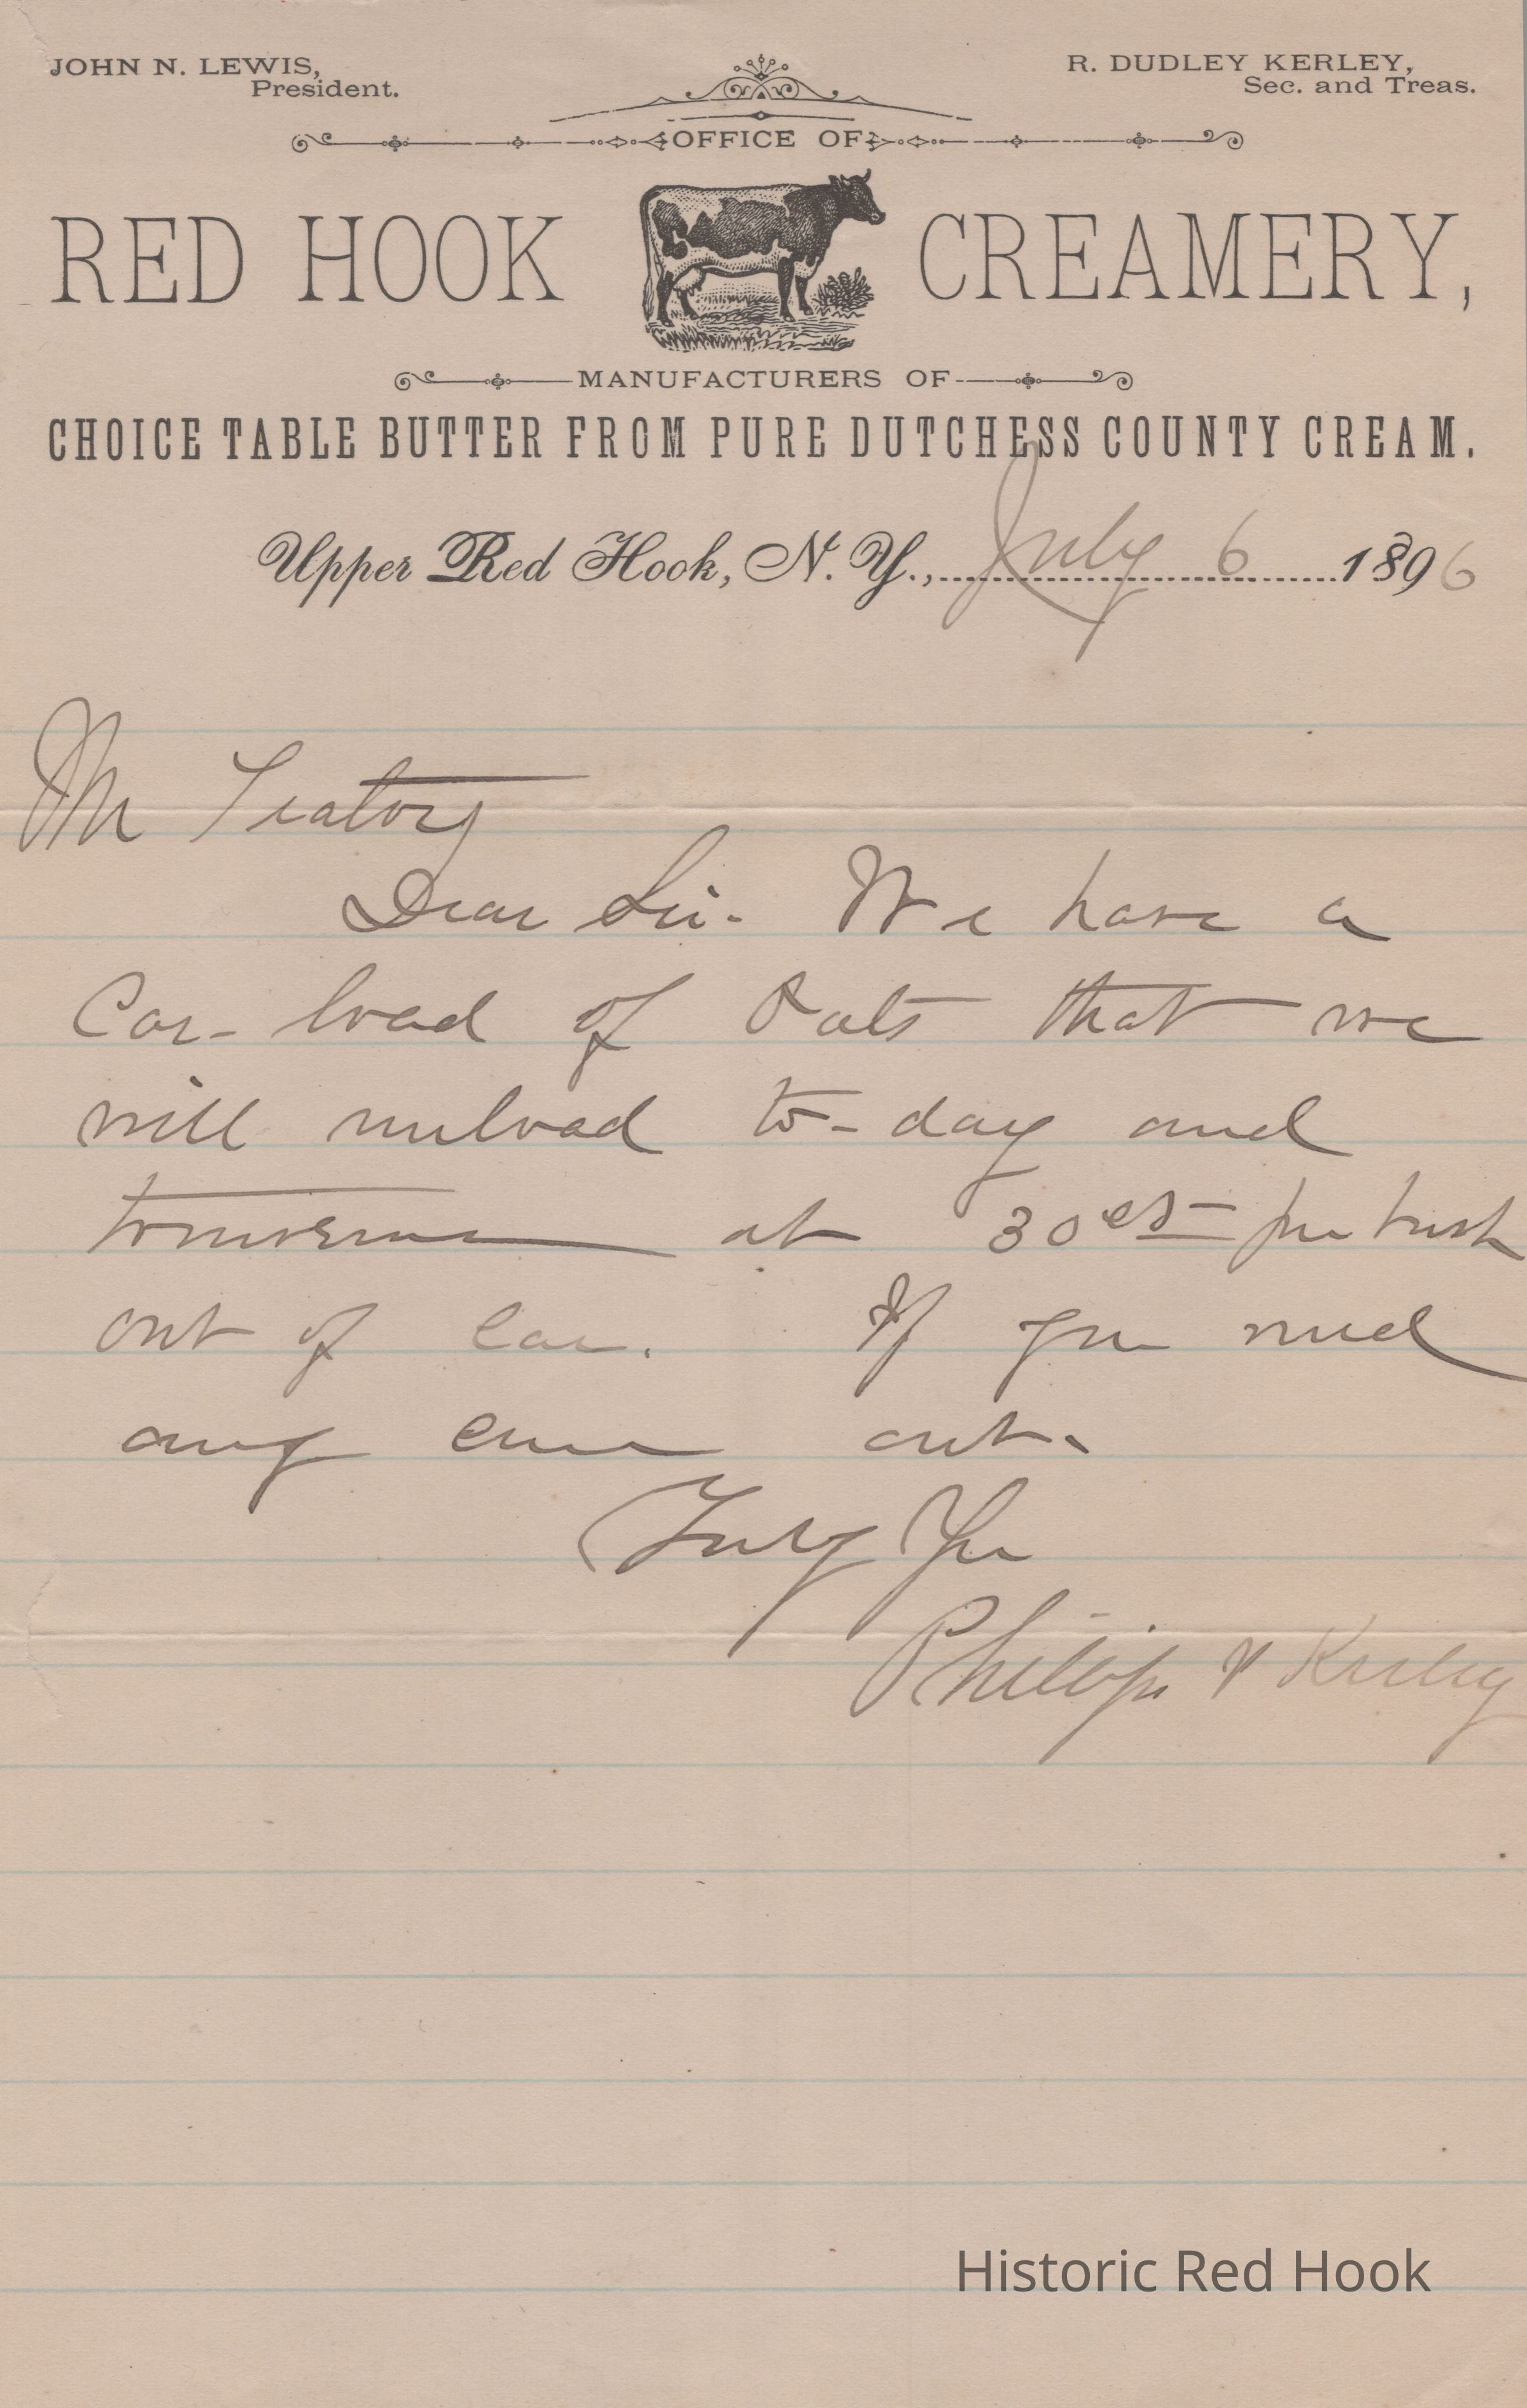 JOHN N. LEWIS,
President.
R. DUDLEY KERLEY,
Sec. and Treas.
OFFICE OF
RED HOOK CREAMERY,
MANUFACTURERS OF
CHOICE TABLE BUTTER FROM PURE DUTCHESS COUNTY CREAM.
Upper Red Hook, N. Y., July 6 1896
Mr
Dear Sir. We have a
Car-load of Oats that we
will unload to-day and
tomorrow at 30 cts per bush
out of car. If you need
any come out.
Truly Yrs
Phillips & Kerley
Historic Red Hook